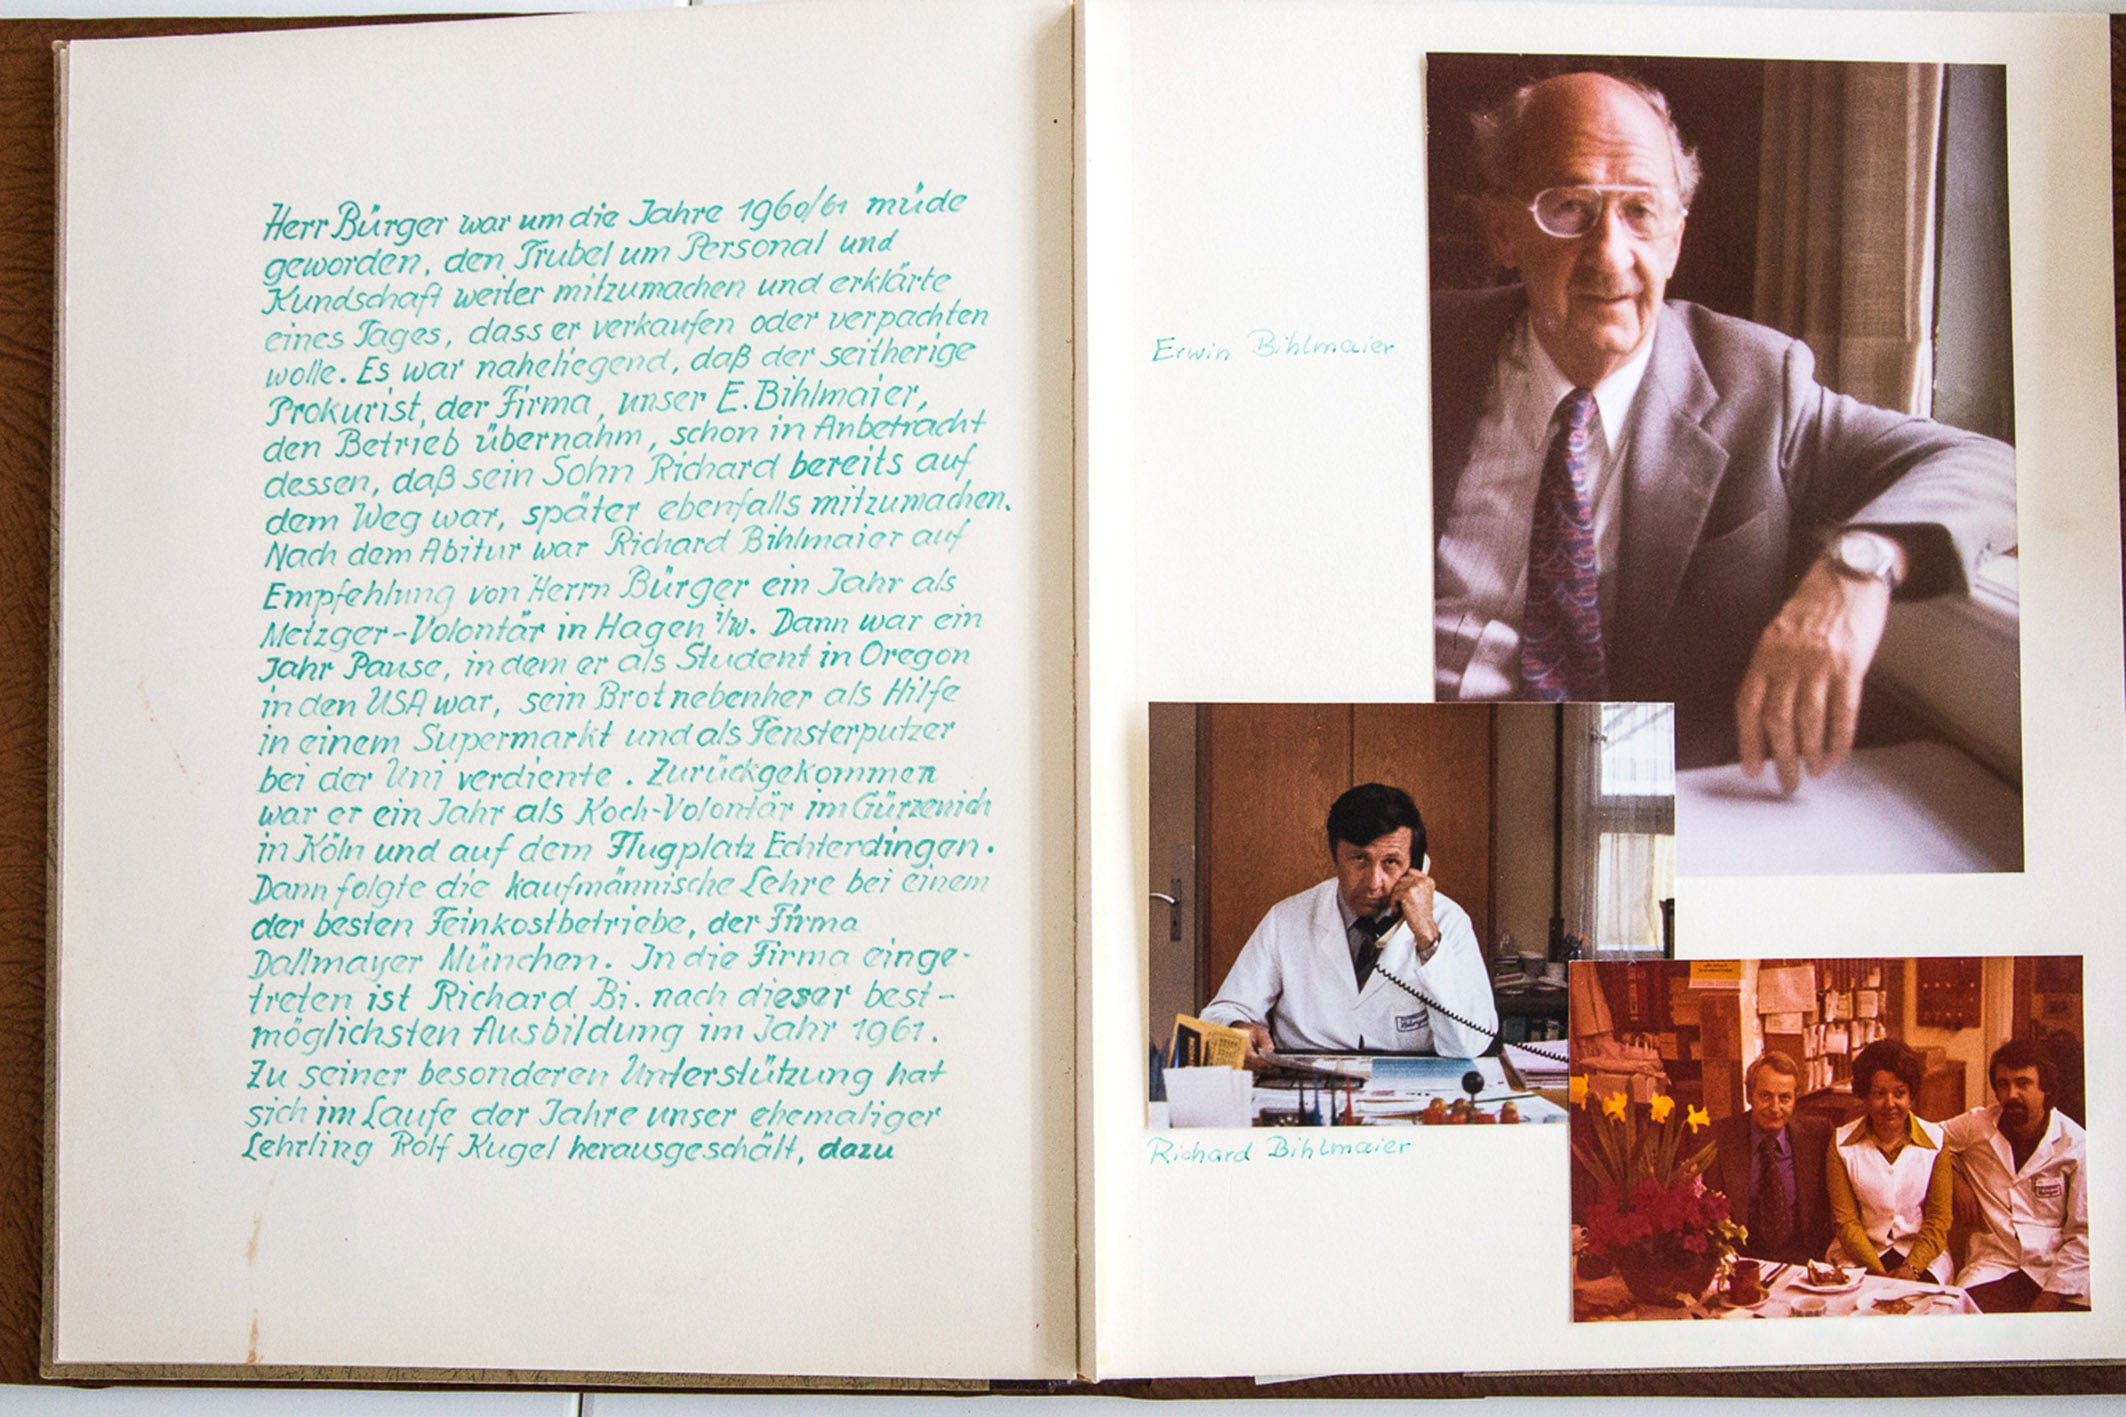 Herr Bürger war um die Jahre 1960/61 müde
geworden, den Trubel um Personal und
Kundschaft weiter mitzumachen und erklärte
eines Tages, dass er verkaufen oder verpachten
wolle. Es war naheliegend, daß der seitherige
Prokurist, der Firma, unser E. Bihlmaier,
den Betrieb übernahm, schon in Anbetracht
dessen, daß sein Sohn Richard bereits auf
dem Weg war, später ebenfalls mitzumachen.
Nach dem Abitur war Richard Bihlmaier auf
Empfehlung von Herrn Bürger ein Jahr als
Metzger-Volontär in Hagen i/W. Dann war ein
Jahr Pause, in dem er als Student in Oregon
in den USA war, sein Brot nebenher als Hilfe
in einem Supermarkt und als Fensterputzer
bei der Uni verdiente. Zurückgekommen
war er ein Jahr als Koch-Volontär im Gürzenich
in Köln und auf dem Flugplatz Echterdingen.
Dann folgte die kaufmännische Lehre bei einem
der besten Feinkostbetriebe, der Firma
Dallmayer München. In die Firma einge-
treten ist Richard Bi. nach dieser best-
möglichsten Ausbildung im Jahr 1961.
Zu seiner besonderen Unterstützung hat
sich im Laufe der Jahre unser ehemaliger
Lehrling Rolf Kugel herausgeschält, dazu
Erwin Bihlmaier
Richard Bihlmaier